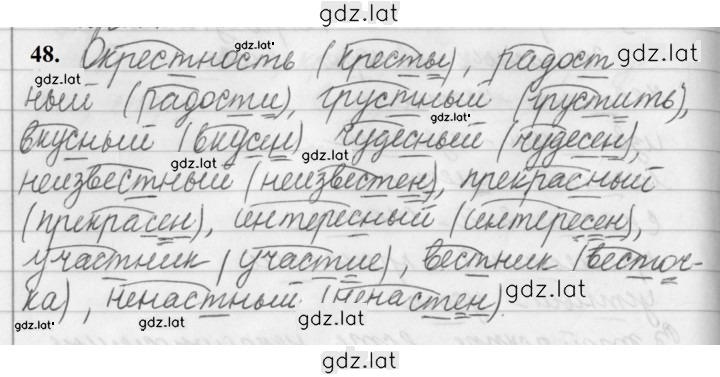 gdz.lat
48. Окрестность (кресты), радост
gdz.lat
gdz.lat
gdz.lat
ный (радости), грустный (грустить),
gdz.lat
gdz.lat
вкусный (вкусен) чудесный (чудесен),
gdz.lat
gdz.lat
неизвестный (неизвестен), прекрасный
(прекрасен), интересный (интересен),
участник (участие), вестник (весточ-
ка), ненастный (ненастен).
gdz.lat
gdz.lat
gdz.lat
gdz.lat
gdz.lat
gdz.lat